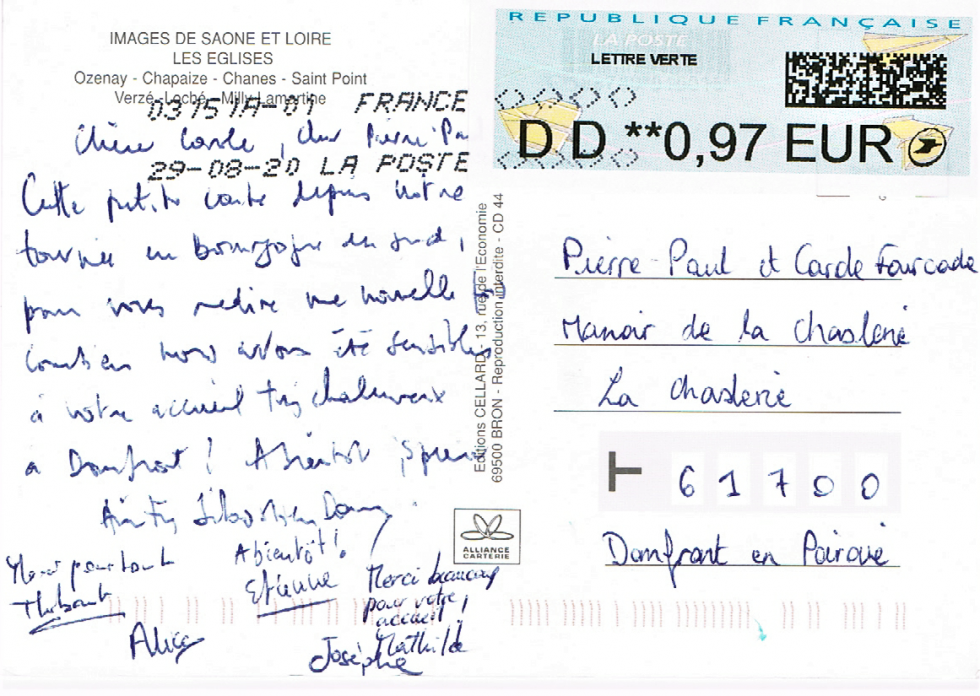 IMAGES DE SAONE ET LOIRE
LES EGLISES
Ozenay - Chapaize - Chanes - Saint Point
Verzé - Loché - Milly Lamartine
03757A-01 FRANCE
29-08-20 LA POSTE
REPUBLIQUE FRANÇAISE
LA POSTE
LETTRE VERTE
DD **0,97 EUR
Chère Carole, cher Pierre Pa
Cette petite carte depuis notre
tournée en bourgogne du sud,
pour vous redire une nouvelle
combien nous avons été sensibles
à votre accueil très chaleureux
à Domfront ! A bientôt j'espère
Merci pour tout
Thibault
A bientôt !
Etienne
Merci beaucoup
pour votre
accueil !
Mathilde
Alice
Josèphe
Editions CELLARD - 13, rue de l'Economie
69500 BRON - Reproduction interdite - CD 44
ALLIANCE
CARTERIE
Pierre-Paul et Carole Fourcade
Manoir de la chaslerie
La chaslerie
61700
Domfront en Poiraie